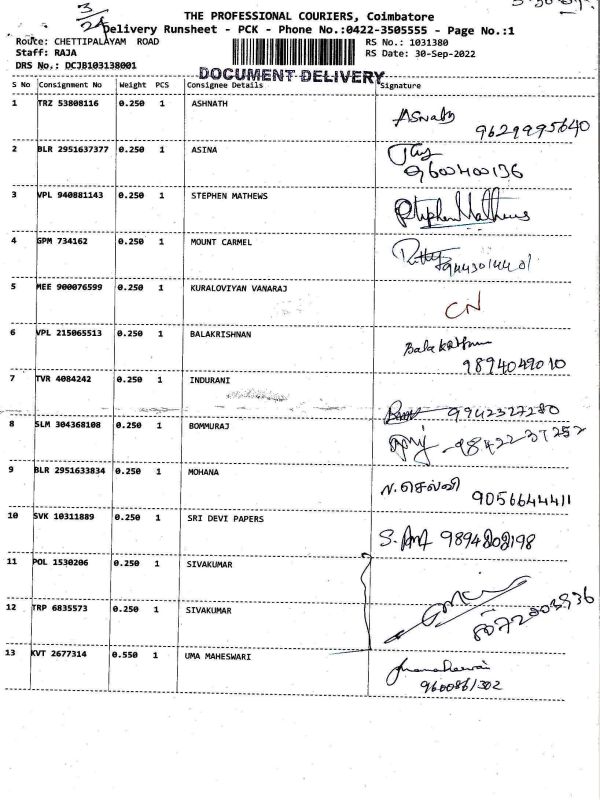 3/24
THE PROFESSIONAL COURIERS, Coimbatore
Delivery Runsheet - PCK - Phone No.:0422-3505555 - Page No.:1
Route: CHETTIPALAYAM ROAD RS No.: 1031380
Staff: RAJA RS Date: 30-Sep-2022
DRS No.: DCJB103138001
DOCUMENT DELIVERY
S No Consignment No Weight PCS Consignee Details Signature
1 TRZ 53808116 0.250 1 ASHNATH Asnath
9629995640
2 BLR 2951637377 0.250 1 ASINA
9600400136
3 VPL 940881143 0.250 1 STEPHEN MATHEWS Stephen Mathews
4 GPM 734162 0.250 1 MOUNT CARMEL
9443014401
5 MEE 900076599 0.250 1 KURALOVIYAN VANARAJ CN
6 VPL 215065513 0.250 1 BALAKRISHNAN
9894049010
7 TVR 4084242 0.250 1 INDURANI
9942327280
8 SLM 304368108 0.250 1 BOMMURAJ 98422 37252
9 BLR 2951633834 0.250 1 MOHANA ந. செல்வி
9056644411
10 SVK 10311889 0.250 1 SRI DEVI PAPERS
11 POL 1530206 0.250 1 SIVAKUMAR
12 TRP 6835573 0.250 1 SIVAKUMAR
13 KVT 2677314 0.550 1 UMA MAHESWARI
9600861302